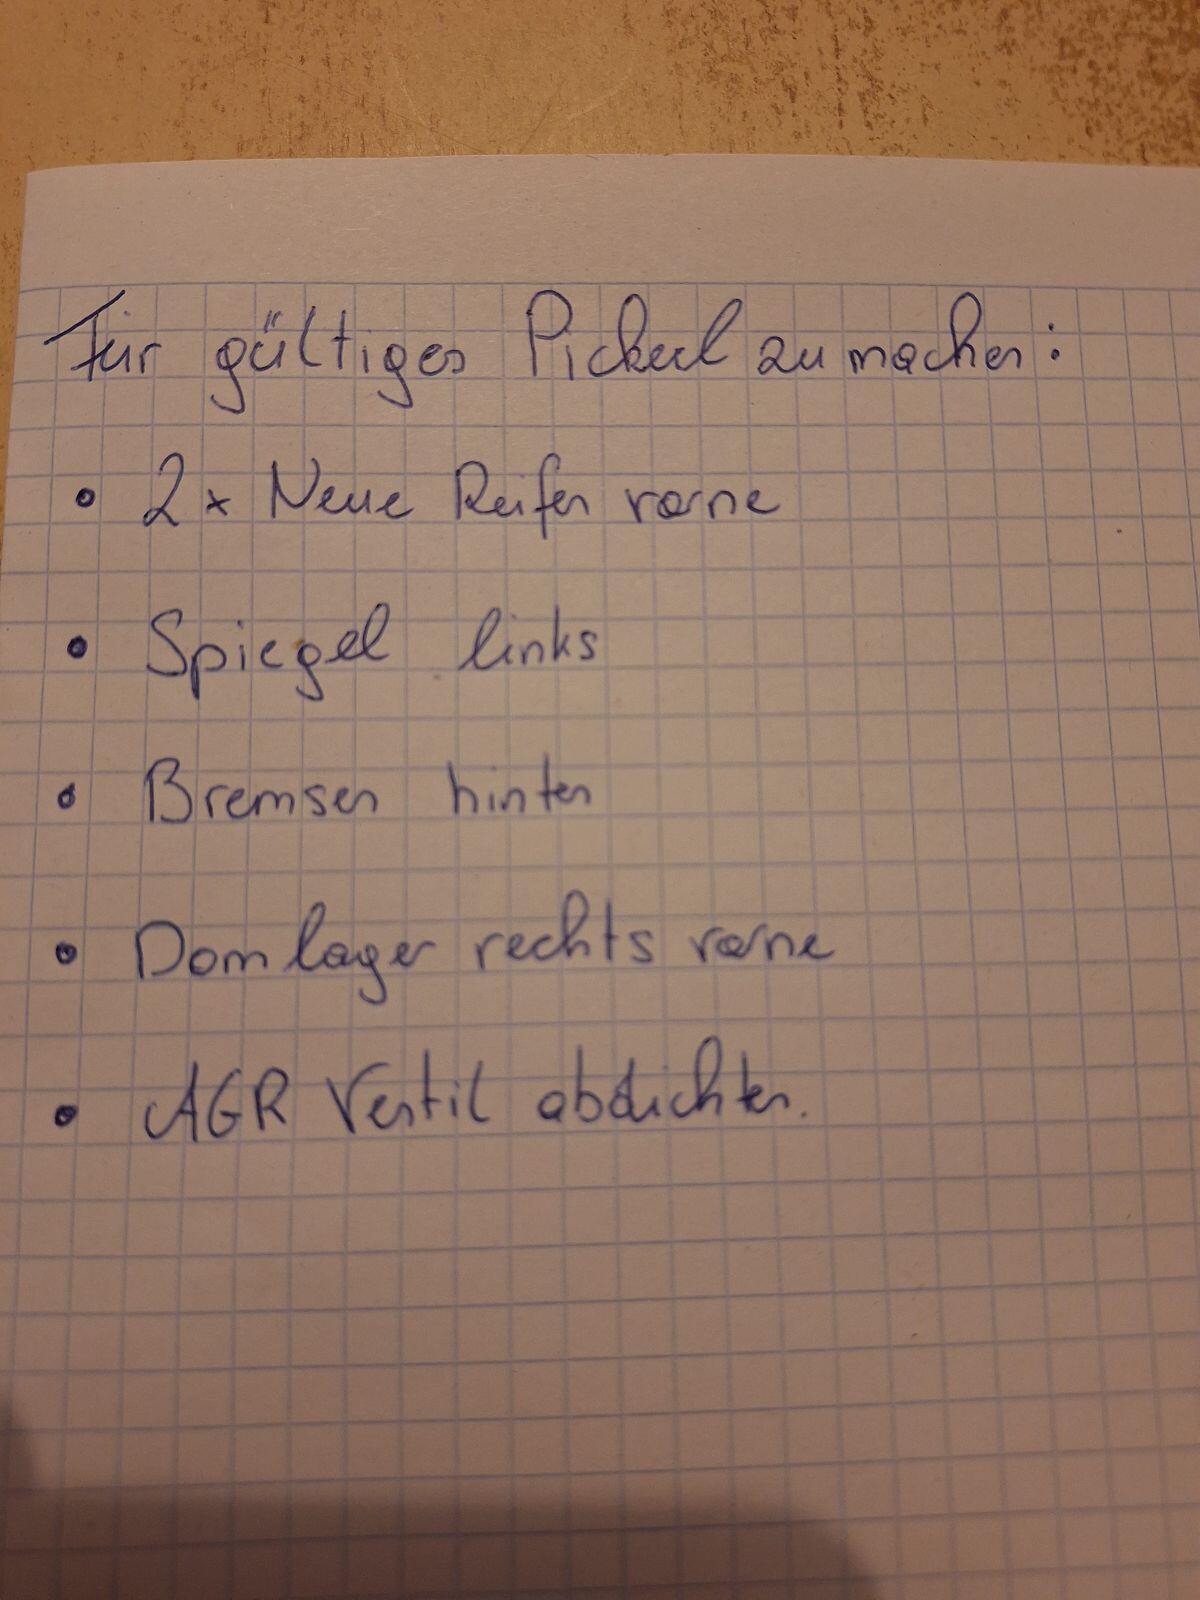 Für gültiges Pickerl zu machen:
• 2x Neue Reifen vorne
• Spiegel links
• Bremsen hinten
• Domlager rechts vorne
• AGR Ventil abdichten.